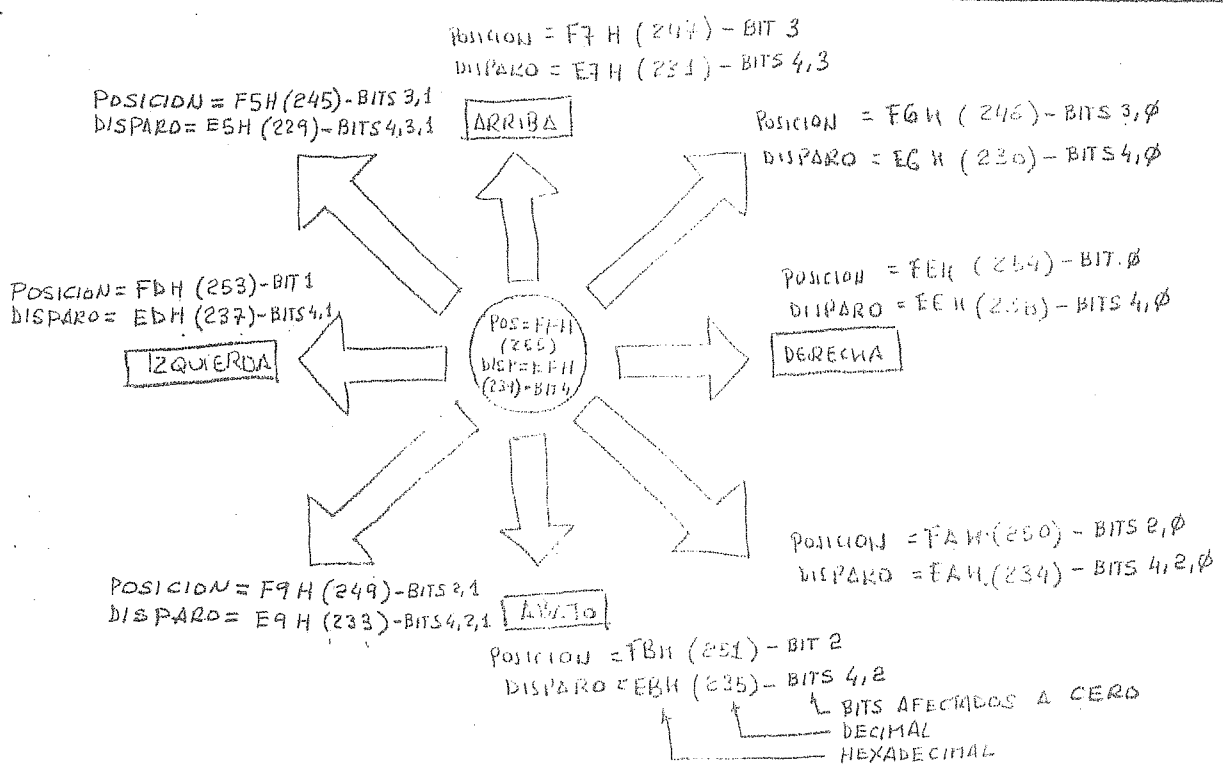 POSICION = F7 H (247) - BIT 3
DISPARO = E7 H (231) - BITS 4,3
POSICION = F5H (245) - BITS 3,1
DISPARO = E5H (229) - BITS 4,3,1
ARRIBA
POSICION = F6 H (246) - BITS 3,Ø
DISPARO = E6 H (230) - BITS 4,Ø
POSICION = FDH (253) - BIT 1
DISPARO = EDH (237) - BITS 4,1
IZQUIERDA
POS = FFH
(255)
DISP = EFH
(239) - BIT 4
POSICION = FEH (254) - BIT. Ø
DISPARO = EEH (238) - BITS 4,Ø
DERECHA
POSICION = F9 H (249) - BITS 2,1
DISPARO = E9 H (233) - BITS 4,2,1
ABAJO
POSICION = FAH (250) - BITS 2,Ø
DISPARO = EAH (234) - BITS 4,2,Ø
POSICION = FBH (251) - BIT 2
DISPARO = EBH (235) - BITS 4,2
BITS AFECTADOS A CERO
DECIMAL
HEXADECIMAL